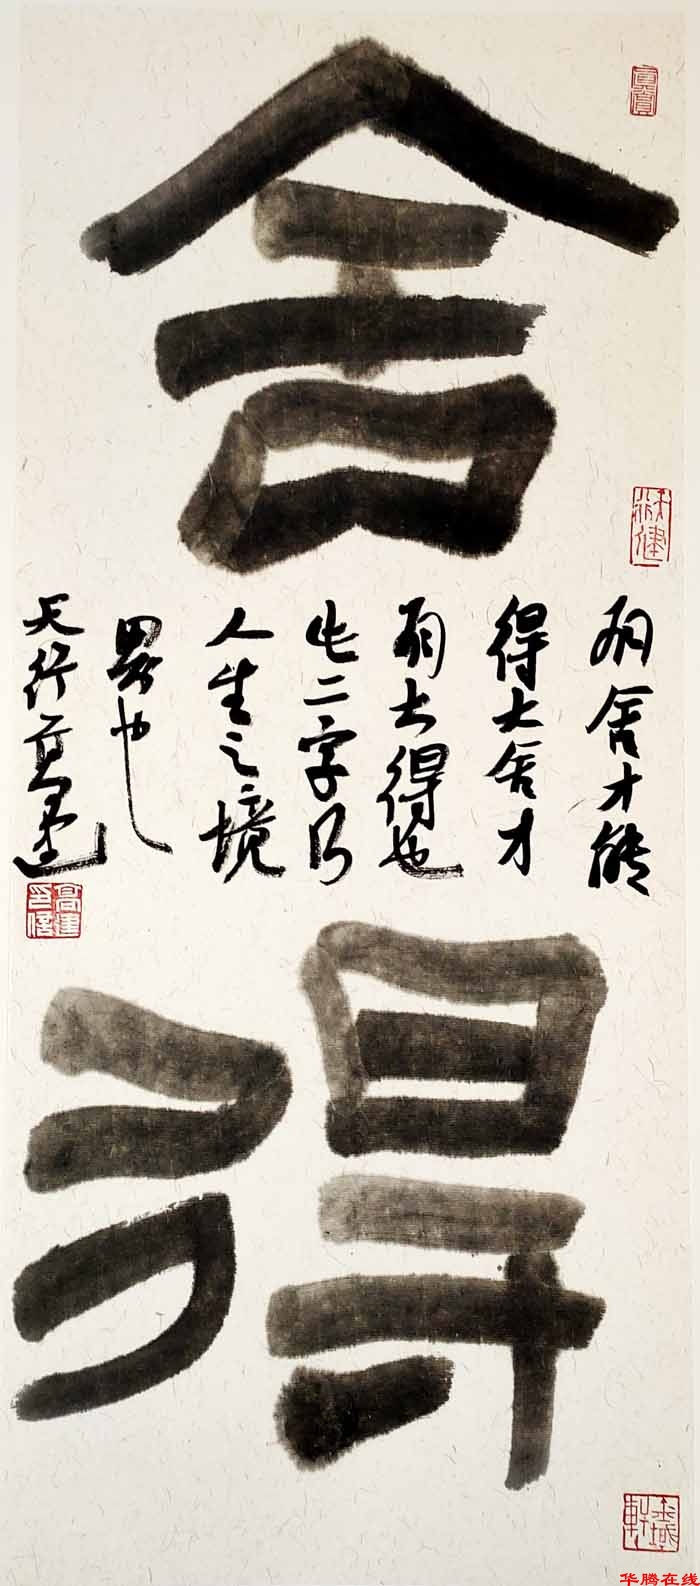 舍
有舍才能
得大舍才
有大得也
此二字乃
人生之境
界也
天行高建
得
华腾在线